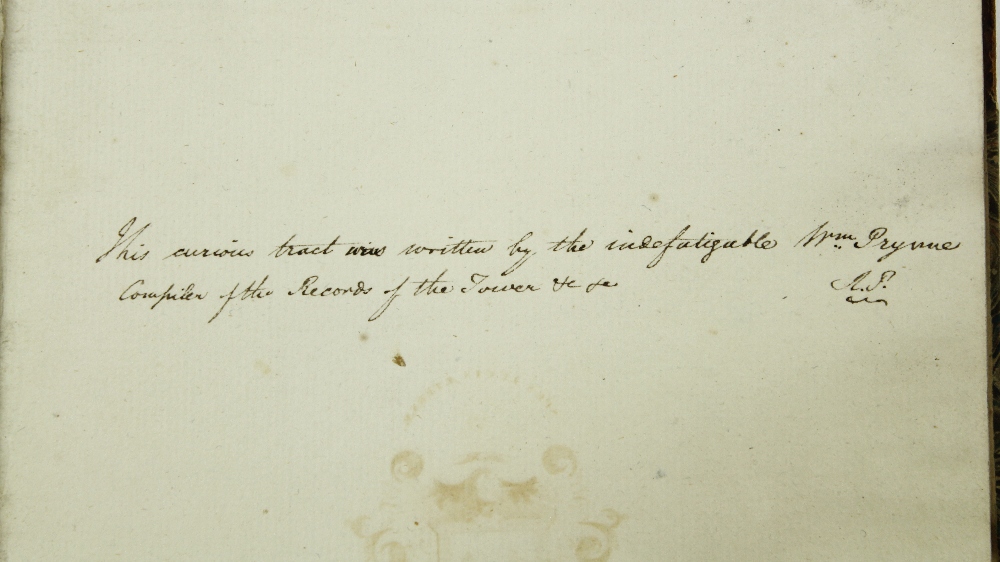 This curious tract was written by the indefatigable Wm. Prynne
Compiler of the Records of the Tower &c &c